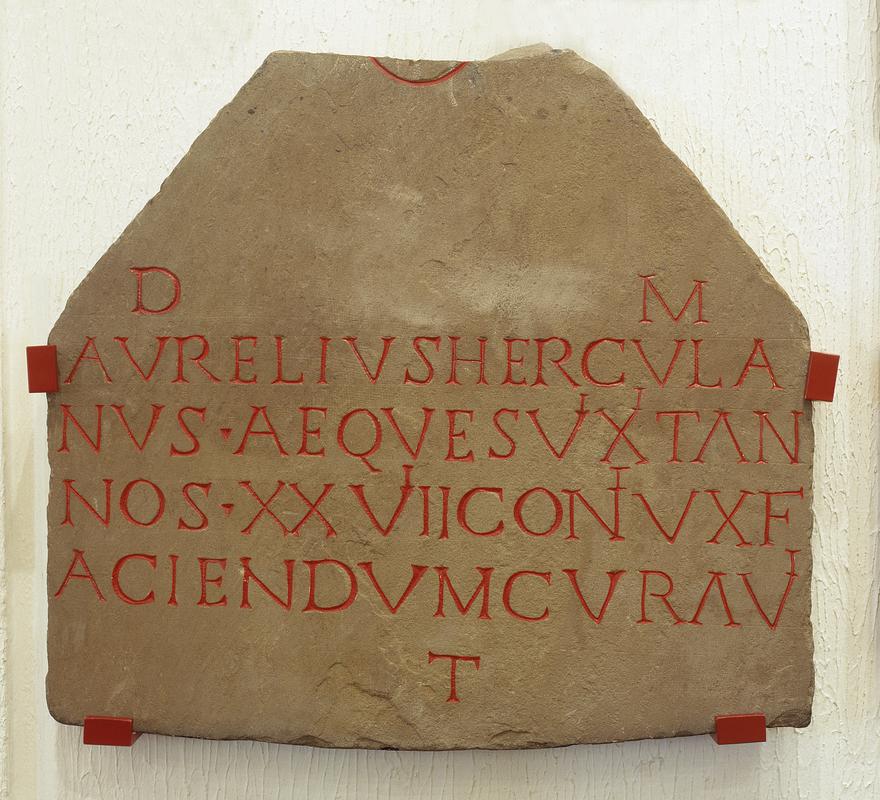 D M
AVRELIVSHERCVLA
NVS·AEQVESVIXITAN
NOS·XXVIIICONIVXF
ACIENDVMCVRAVI
T